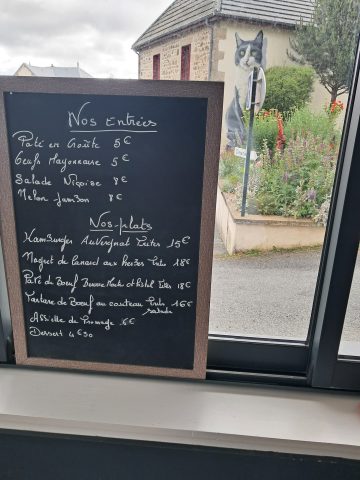 Nos Entrées
Paté en Croûte 5€
Oeufs Mayonnaise 5€
Salade Niçoise 8€
Melon Jambon 8€
Nos plats
Hamburger Auvergnat frites 15€
Magret de Canard aux herbes frites 18€
Pavé de Boeuf frites 18€
Tartare de Boeuf au couteau frites 16€
salade
Assiette de fromage 6€
Dessert 4€50